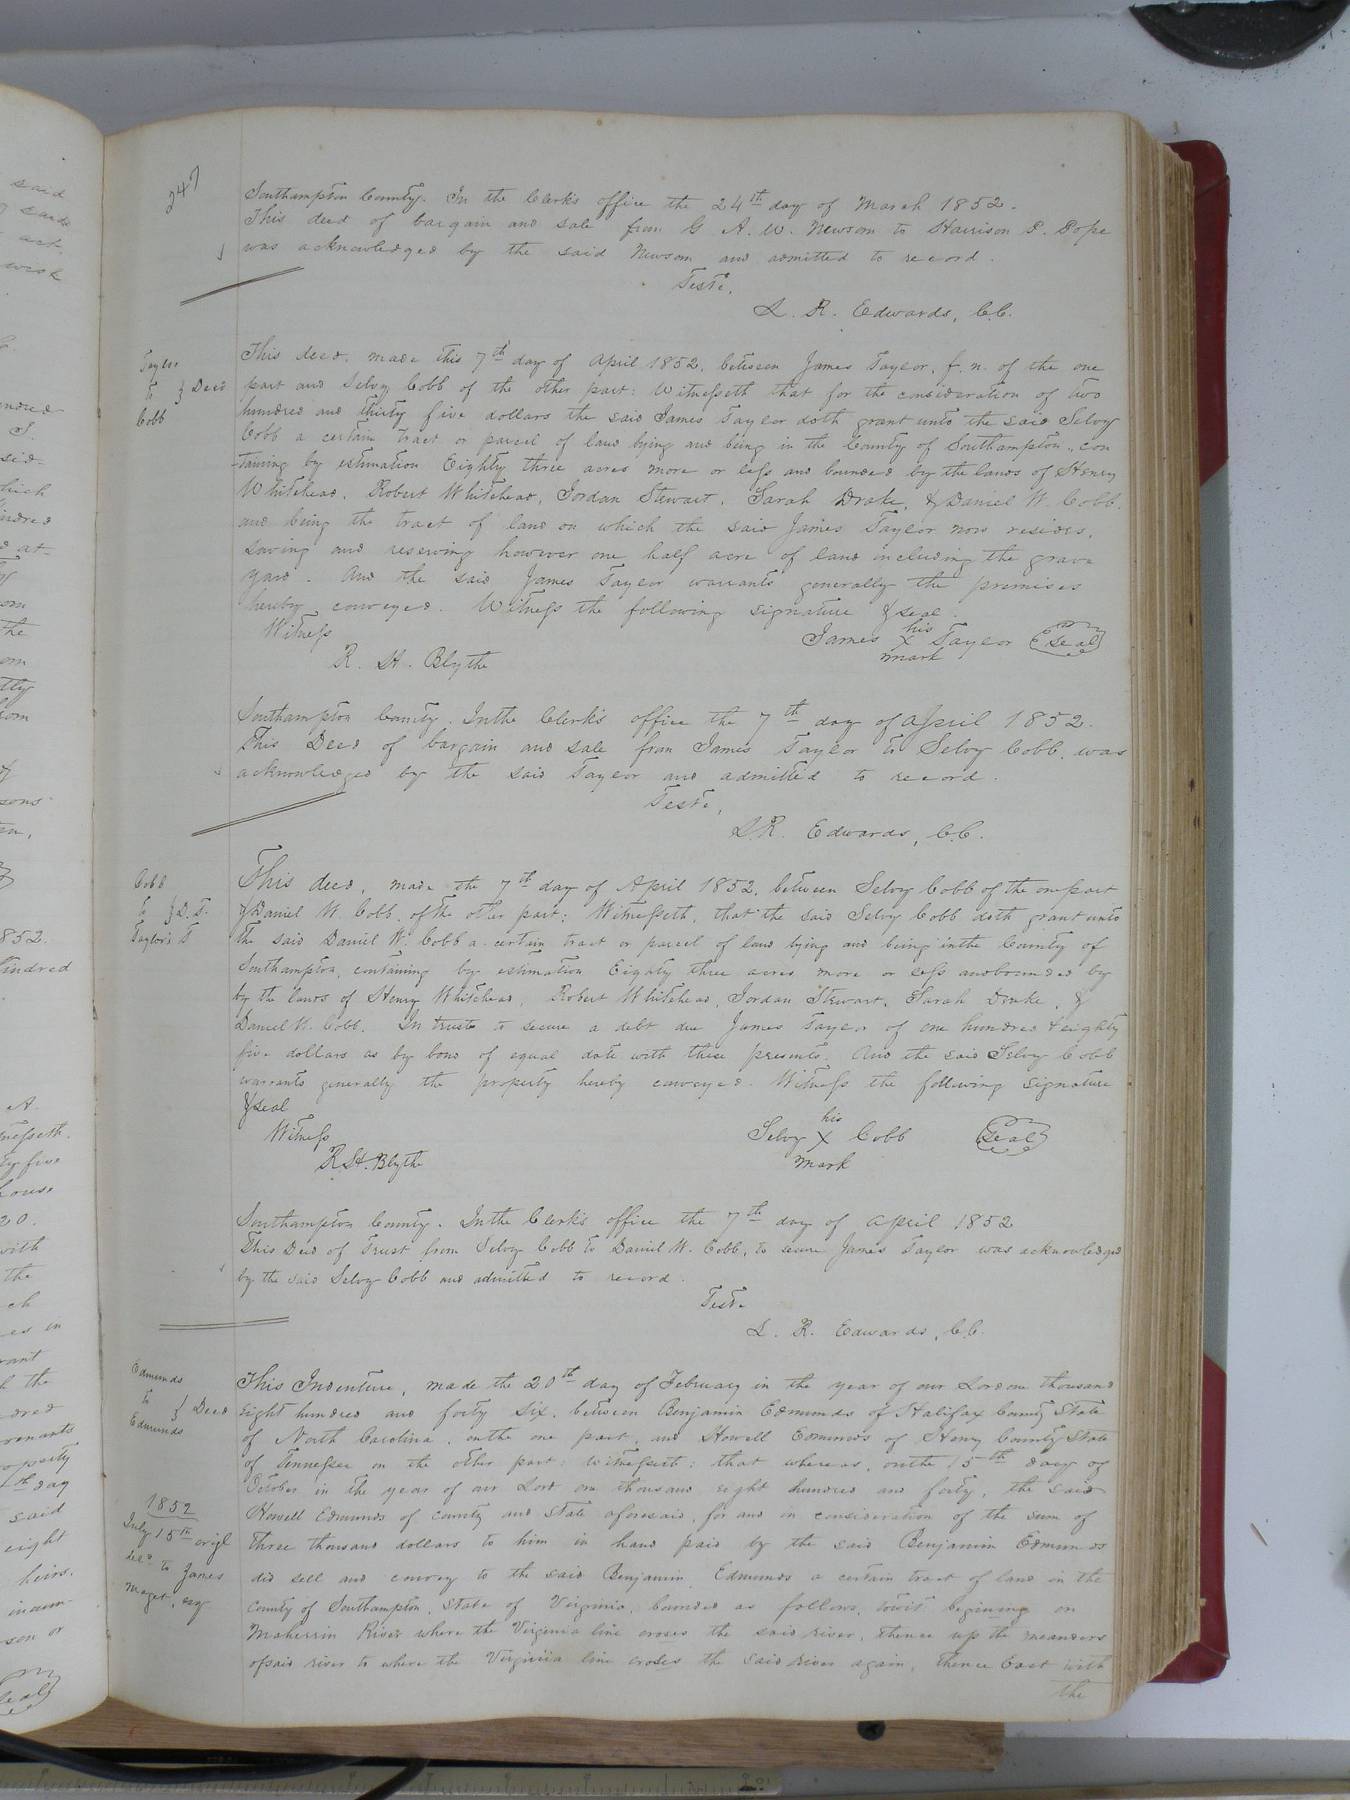 247
Southampton County. In the Clerk's office the 24th day of March 1852.
This deed of bargain and sale from G. A. W. Newsom to Harrison P. Pope
was acknowledged by the said Newsom and admitted to record.
Teste,
L. R. Edwards, C.C.
Taylor
to } Deed
Cobb
This deed, made this 7th day of April 1852, between James Taylor, f. n. of the one
part and Selvy Cobb of the other part: Witnesseth that for the consideration of two
hundred and thirty five dollars the said James Taylor doth grant unto the said Selvy
Cobb a certain tract or parcel of land lying and being in the County of Southampton, con
-taining by estimation Eighty three acres more or less and bounded by the lands of Henry
Whitehead, Robert Whitehead, Jordan Stewart, Sarah Drake, & Daniel W. Cobb.
and being the tract of land on which the said James Taylor now resides,
saving and reserving however one half acre of land including the grave
yard. And the said James Taylor warrants generally the premises
hereby conveyed. Witness the following signature & seal.
Witness
R. H. Blythe
James his X mark Taylor (Seal)
Southampton County. In the Clerk's office the 7th day of April 1852.
This Deed of bargain and sale from James Taylor to Selvy Cobb, was
acknowledged by the said Taylor and admitted to record.
Teste,
L. R. Edwards, C.C.
Cobb
to } D. T.
Taylor's T
This deed, made the 7th day of April 1852, between Selvy Cobb of the one part
& Daniel W. Cobb, of the other part: Witnesseth, that the said Selvy Cobb doth grant unto
the said Daniel W. Cobb a certain tract or parcel of land lying and being in the County of
Southampton, containing by estimation Eighty three acres more or less and bounded by
by the lands of Henry Whitehead, Robert Whitehead, Jordan Stewart, Sarah Drake, &
Daniel W. Cobb. In trust to secure a debt due James Taylor of one hundred & eighty
five dollars as by bond of equal date with these presents. And the said Selvy Cobb
warrants generally the property hereby conveyed. Witness the following signature
& seal
Witness
R. H. Blythe
Selvy his X mark Cobb (Seal)
Southampton County. In the Clerk's office the 7th day of April 1852
This Deed of Trust from Selvy Cobb to Daniel W. Cobb, to secure James Taylor was acknowledged
by the said Selvy Cobb and admitted to record.
Teste
L. R. Edwards, C.C.
Edmunds
to } Deed
Edmunds
1852
July 15th origl
deld to James
Maget, esq
This Indenture, made the 20th day of February in the year of our Lord one thousand
eight hundred and forty six, between Benjamin Edmunds of Halifax County State
of North Carolina, on the one part, and Howell Edmunds of Henry County State
of Tennessee on the other part: Witnesseth: that whereas, on the 15th day of
October in the year of our Lord one thousand eight hundred and forty, the said
Howell Edmunds of county and State aforesaid, for and in consideration of the sum of
three thousand dollars to him in hand paid by the said Benjamin Edmunds
did sell and convey to the said Benjamin Edmunds a certain tract of land in the
County of Southampton, State of Virginia, bounded as follows, towit: begining on
Maherrin River where the Virginia line croses the said river, thence up the meanders
of said river to where the Virginia line croses the said River again, thence East with
the